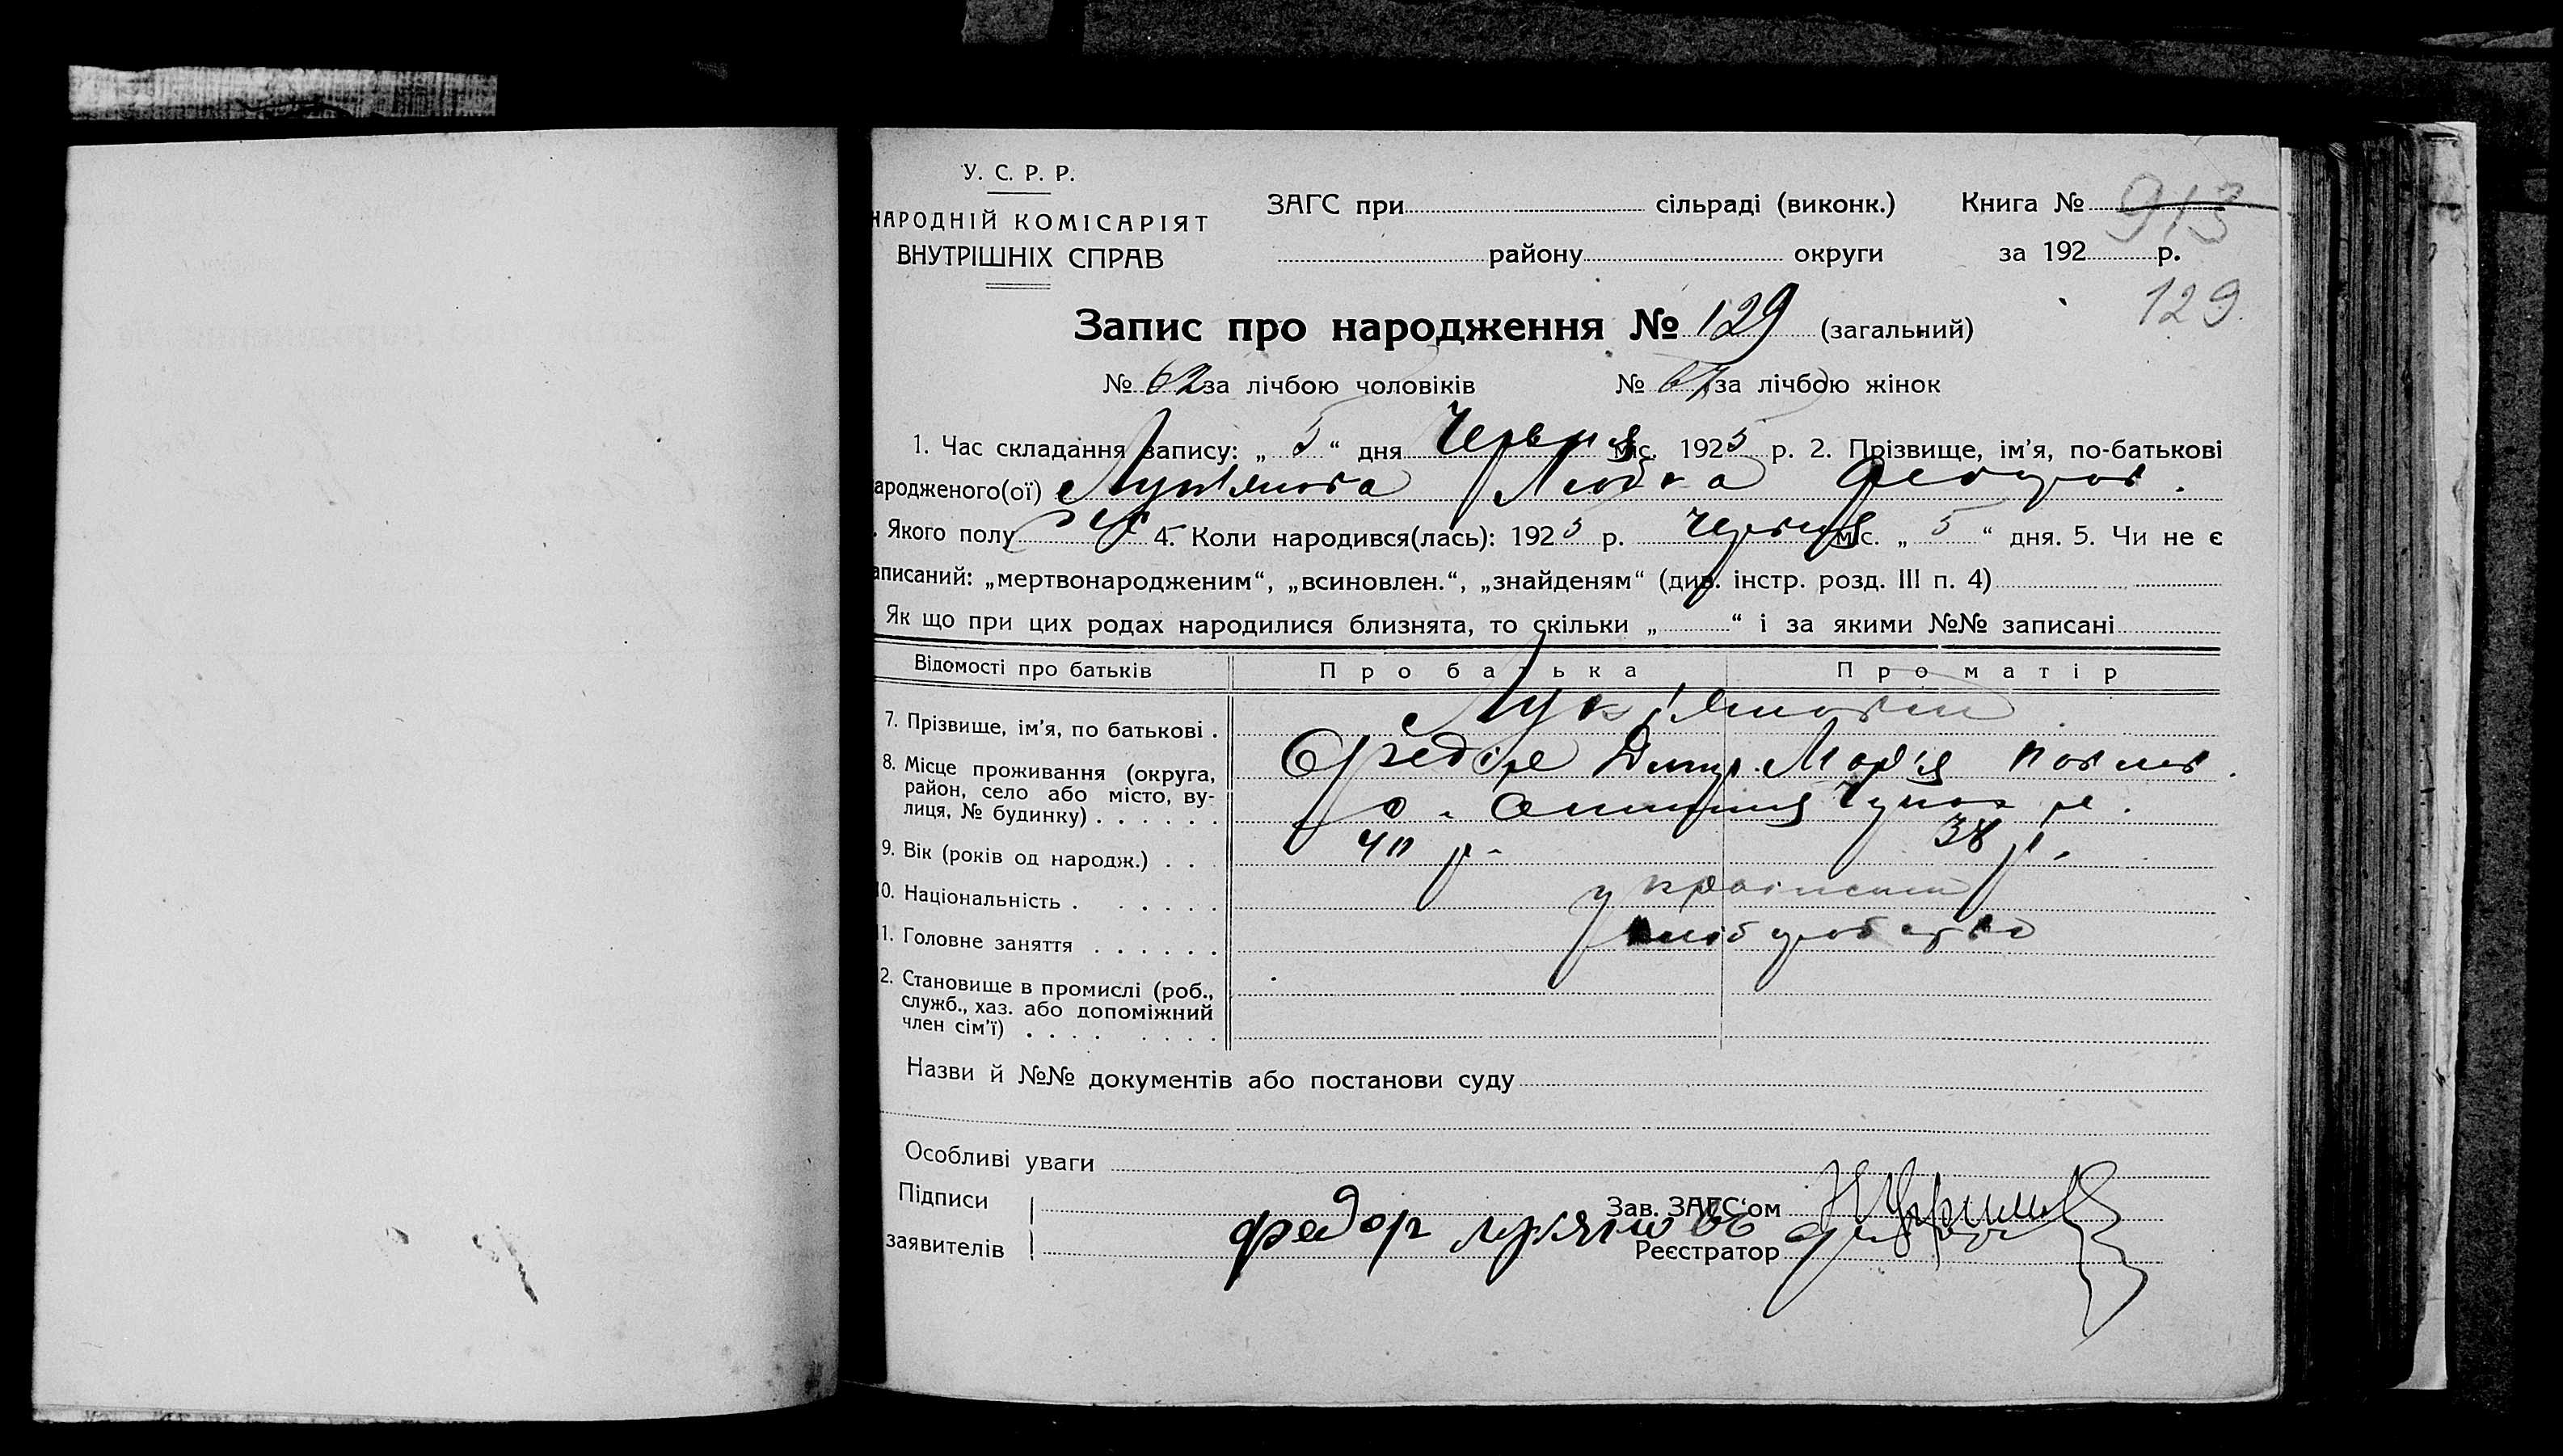 У. С. Р. Р.
НАРОДНІЙ КОМІСАРІЯТ
ВНУТРІШНІХ СПРАВ
ЗАГС при сільраді (виконк.) Книга № 913
району округи за 192 р.
129
Запис про народження № 129 (загальний)
№ 62 за лічбою чоловіків № 67 за лічбою жінок
1. Час складання запису: „ 5 “ дня Червня міс. 1925 р. 2. Прізвище, ім’я, по-батькові
ародженого(ої) Лук'янова Любка Федоров.
. Якого полу 4. Коли народився(лась): 1925 р. Червня міс. „ 5 “ дня. 5. Чи не є
аписаний: „мертвонародженим“, „всиновлен.“, „знайденям“ (див. інстр. розд. III п. 4)
Як що при цих родах народилися близнята, то скільки „ “ і за якими №№ записані
Відомості про батьків Про батька Про матір
7. Прізвище, ім’я, по батькові . Лук'янови
8. Місце проживання (округа, район, село або місто, вулиця, № будинку) . . . . . . Федір Дмитр. Мар'я Павлов.
9. Вік (років од народж.) . . . 40 р. 38 р.
10. Національність . . . . . . українці
11. Головне заняття . . . . . . хліборобство
2. Становище в промислі (роб.,
служб., хаз. або допоміжний
член сім’ї) . . . . . . . .
Назви й №№ документів або постанови суду
Особливі уваги
Підписи Зав. ЗАГС‘ом
заявителів федор Реєстратор